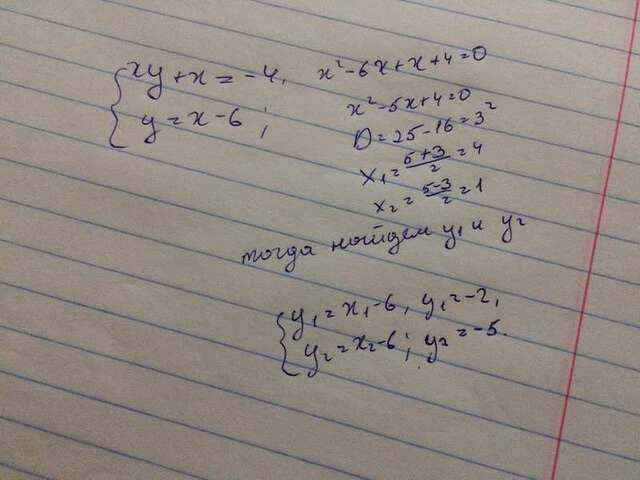 xy + x = -4,
y = x - 6;
x² - 6x + x + 4 = 0
x² - 5x + 4 = 0
D = 25 - 16 = 3²
x₁ = (5+3)/2 = 4
x₂ = (5-3)/2 = 1
тогда найдем y₁ и y₂
y₁ = x₁ - 6, y₁ = -2,
y₂ = x₂ - 6; y₂ = -5.